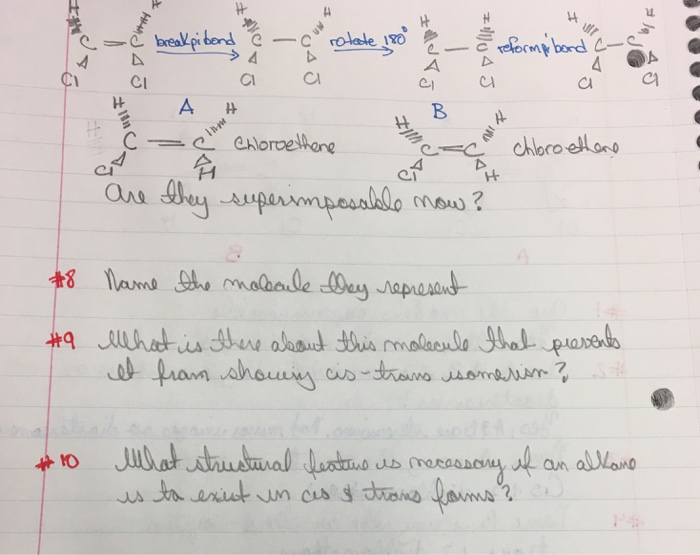 H H H H H H H H
C = C break pi bond C - C rotate 180° C - C reform pi bond C - C
Cl Cl Cl Cl Cl Cl Cl Cl
A B
H H H H
C = C chloroethene C = C chloroethene
Cl H Cl H
Are they superimposable now?
#8 Name the molecule they represent
#9 What is there about this molecule that prevents
it from showing cis-trans isomerism?
#10 What structural feature is necessary if an alkane
is to exist in cis & trans forms?